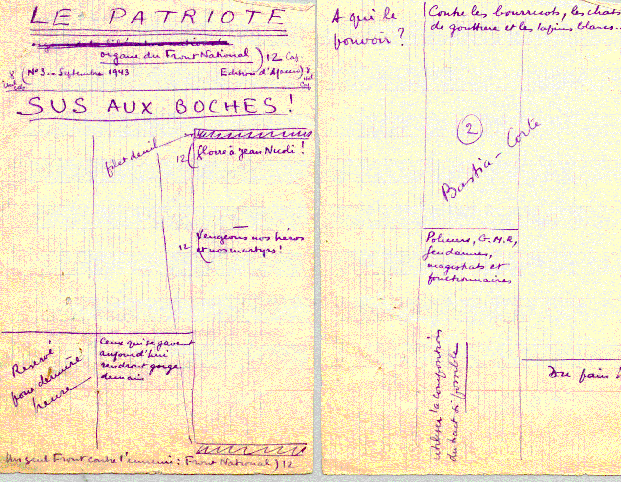 LE PATRIOTE
organe du Front National) 12 Cap
(No 3 — Septembre 1943
Edition d'Ajaccio)
SUS AUX BOCHES!
filet deuil
12
Gloire à Jean Nicoli!
12
Vengeons nos héros
et nos martyrs!
Réservé
pour dernière
heure
Ceux qui se gavent
aujourd'hui
rendront gorge
demain
Un seul Front contre l'ennemi: Front National) 12
A qui le
pouvoir?
Contre les bourricots, les chats
de gouttière et les lapins blancs...
2
Bastia - Corte
Policiers, G.M.R,
gendarmes,
magistrats et
fonctionnaires
utiliser la composition
du haut si possible
Du pain